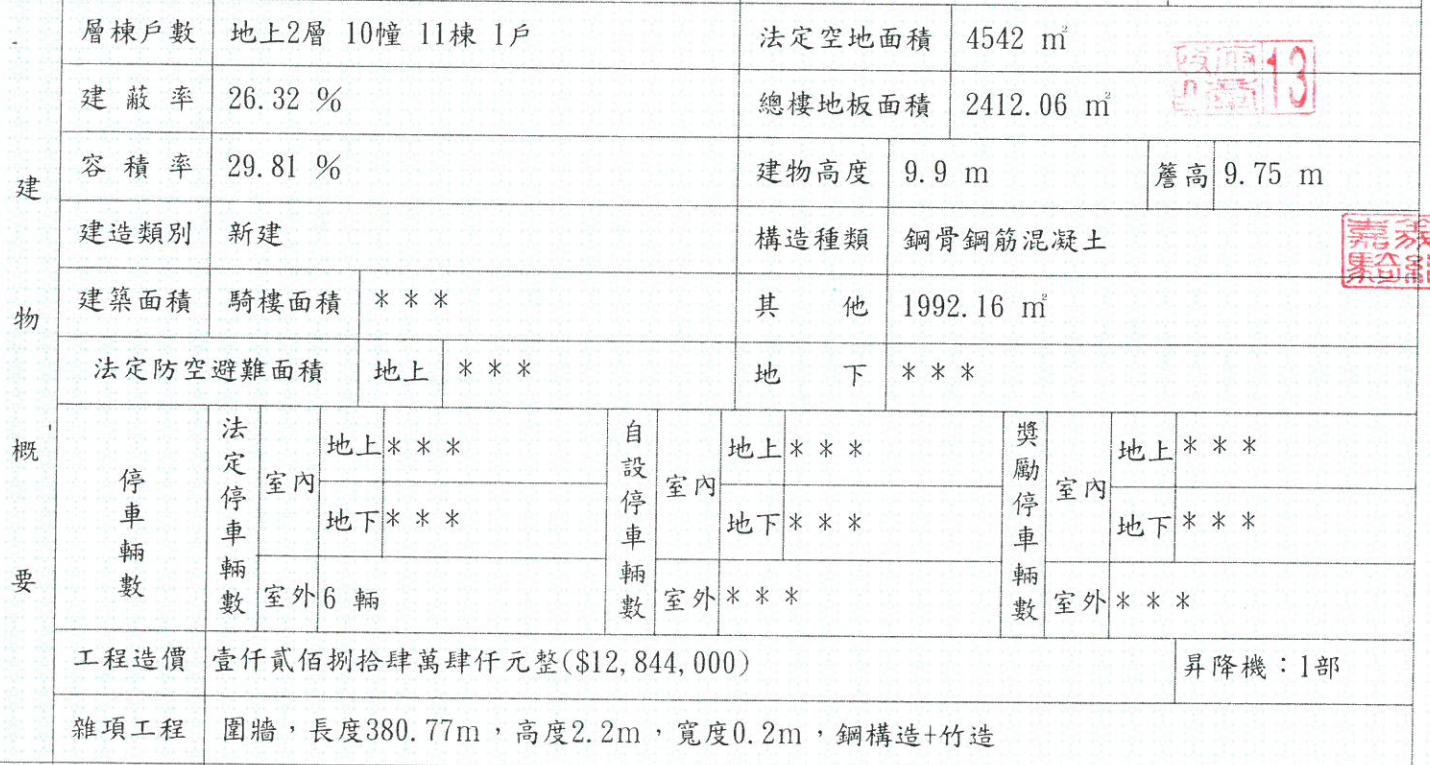 建物概要
層棟戶數 地上2層 10幢 11棟 1戶 法定空地面積 4542 ㎡
建蔽率 26.32 % 總樓地板面積 2412.06 ㎡
13
容積率 29.81 % 建物高度 9.9 m 簷高 9.75 m
建造類別 新建 構造種類 鋼骨鋼筋混凝土
建築面積 騎樓面積 *** 其他 1992.16 ㎡
法定防空避難面積 地上 *** 地下 ***
停車輛數
法定停車輛數 室內 地上 *** 地下 *** 室外 6 輛
自設停車輛數 室內 地上 *** 地下 *** 室外 ***
獎勵停車輛數 室內 地上 *** 地下 *** 室外 ***
工程造價 壹仟貳佰捌拾肆萬肆仟元整($12,844,000) 昇降機：1部
雜項工程 圍牆，長度380.77m，高度2.2m，寬度0.2m，鋼構造+竹造